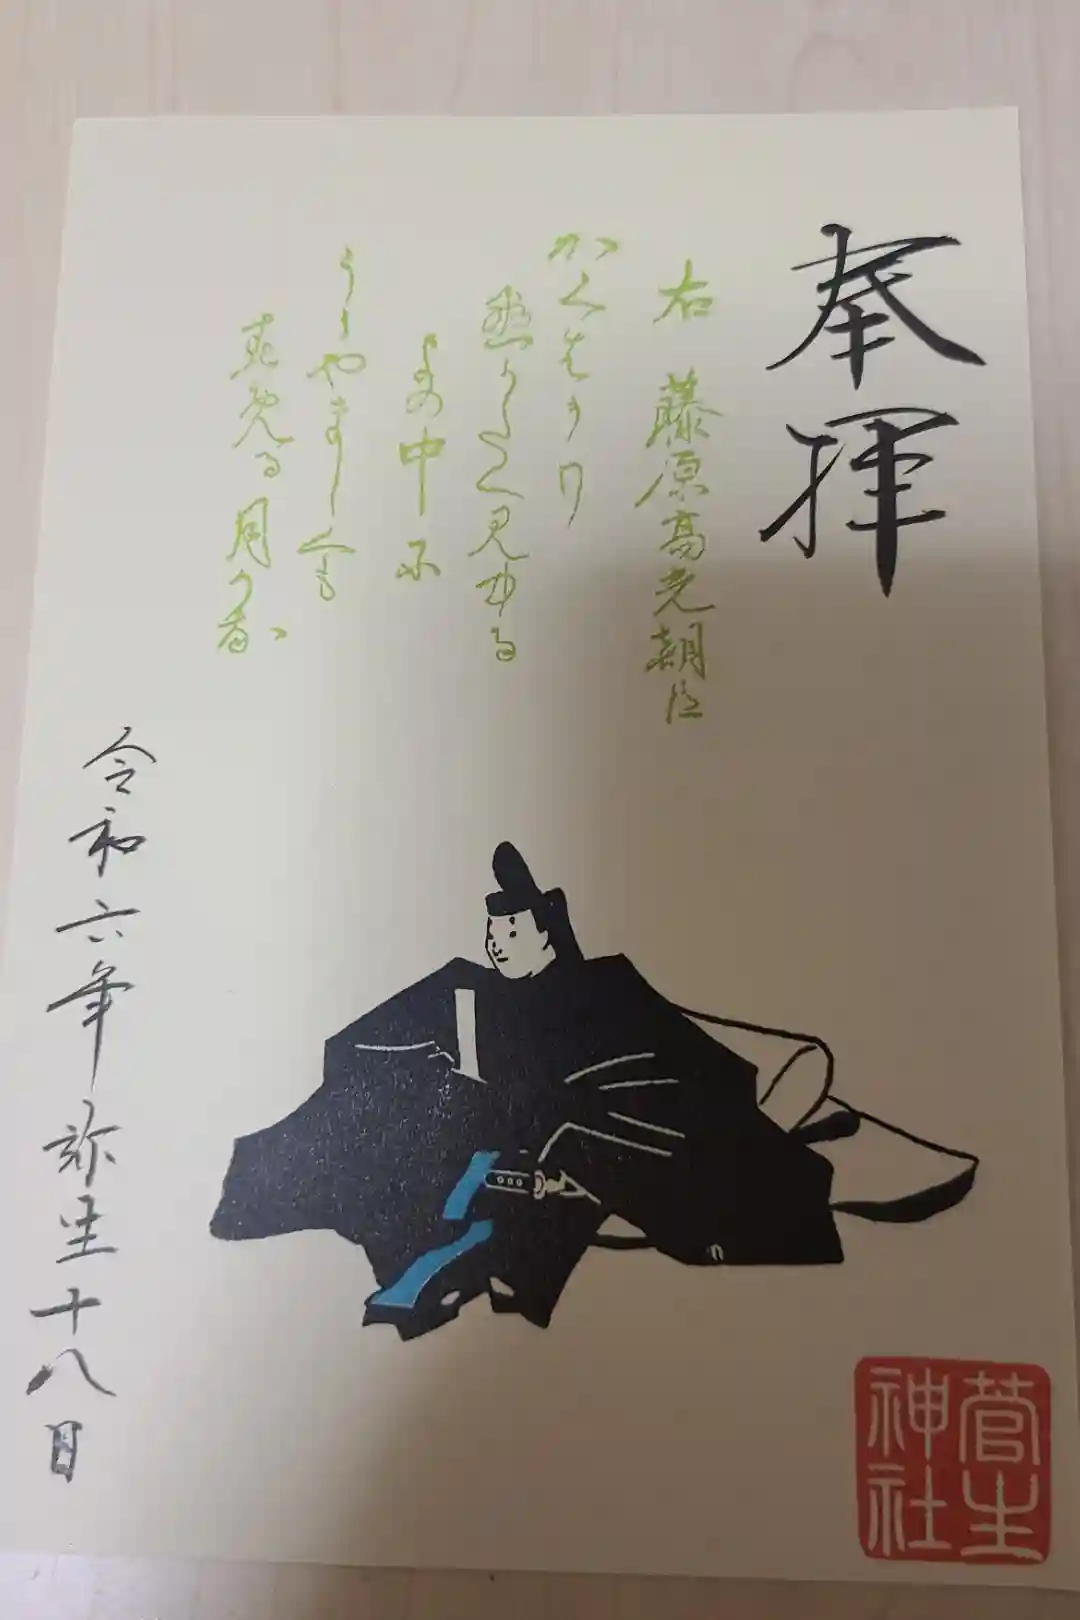 奉拝
右 藤原高光朝臣
かくはかり
経かたく見ゆる
よの中に
うらやましくも
すめる月かな
令和六年弥生十八日
菅生
神社